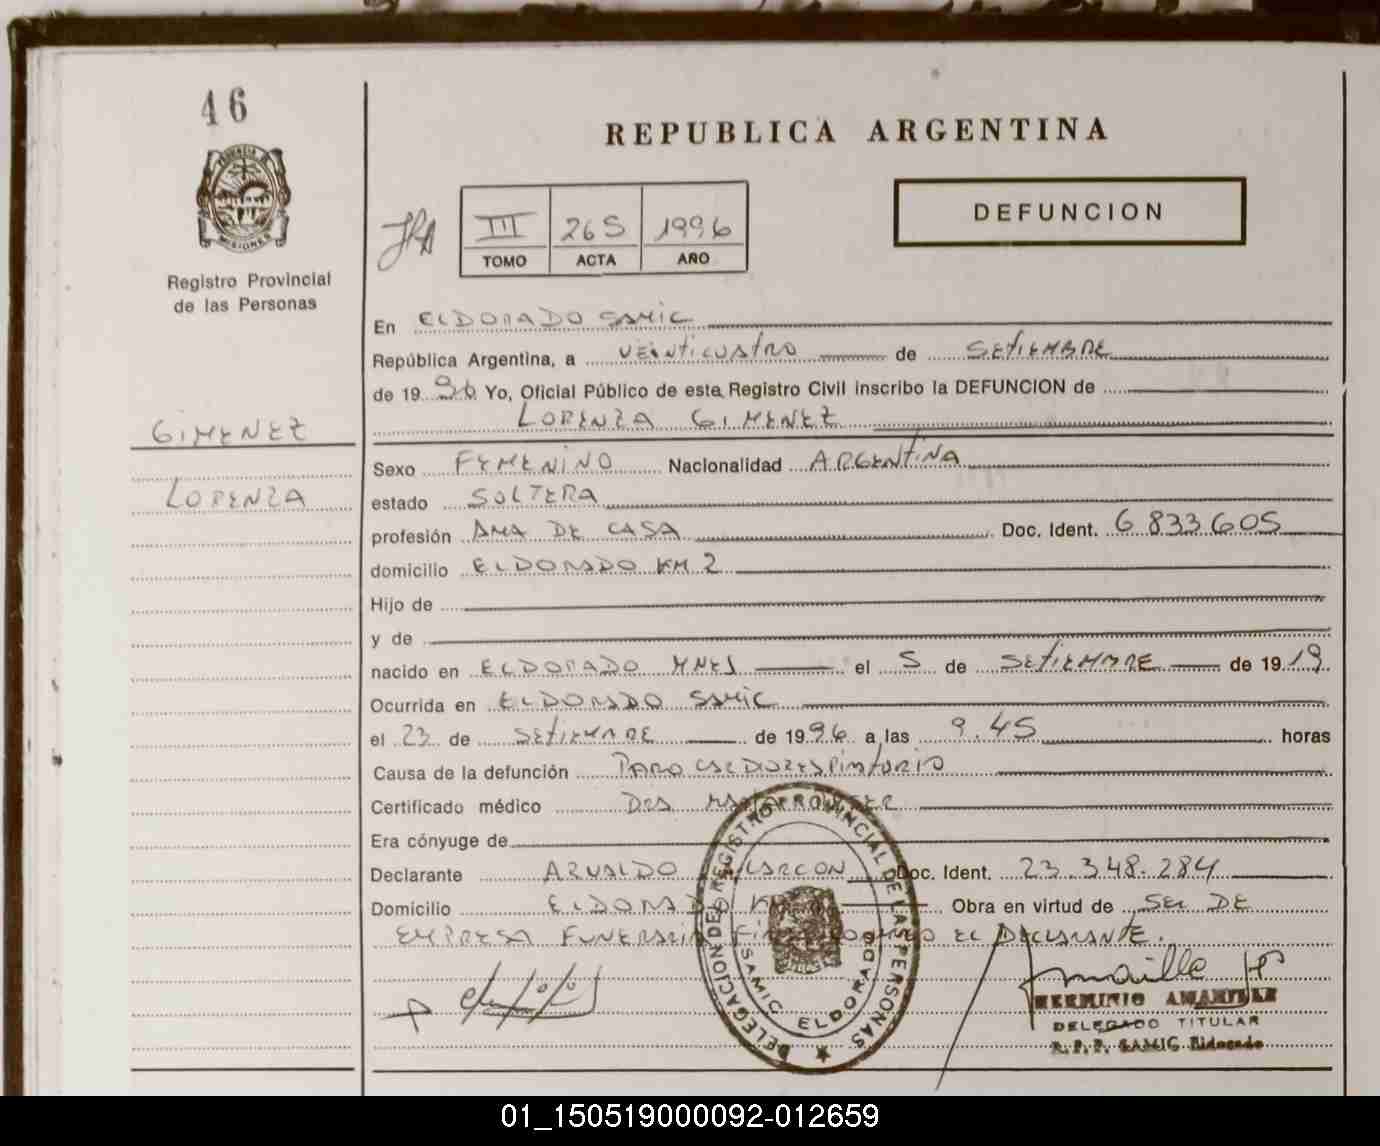 46
PROVINCIA DE
MISIONES
Registro Provincial
de las Personas
GIMENEZ
LORENZA
REPUBLICA ARGENTINA
III 265 1996
TOMO ACTA AÑO
DEFUNCION
En ELDORADO SAMIC
República Argentina, a VEINTICUATRO de SETIEMBRE
de 19 96 Yo, Oficial Público de esta Registro Civil inscribo la DEFUNCION de
LORENZA GIMENEZ
Sexo FEMENINO Nacionalidad ARGENTINA
estado SOLTERA
profesión AMA DE CASA Doc. Ident. 6.833.605
domicilio ELDORADO KM 2
Hijo de
y de
nacido en ELDORADO MNES el 5 de SETIEMBRE de 19 19
Ocurrida en ELDORADO SAMIC
el 23 de SETIEMBRE de 19 96 a las 9.45 horas
Causa de la defunción PARO CARDIORESPIRATORIO
Certificado médico DRA
Era cónyuge de
Declarante ARNALDO ALARCON Doc. Ident. 23.348.284
Domicilio ELDORADO KM Obra en virtud de SER DE
EMPRESA FUNERARIA EL DECLARANTE.
DELEGACION DEL REGISTRO PROVINCIAL DE LAS PERSONAS
SAMIC ELDORADO
HERMINIO
DELEGADO TITULAR
R.P.P. SAMIC Eldorado
01_150519000092-012659